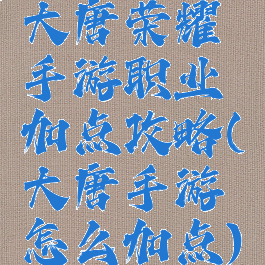 大唐荣耀
手游职业
加点攻略(
大唐手游
怎么加点)